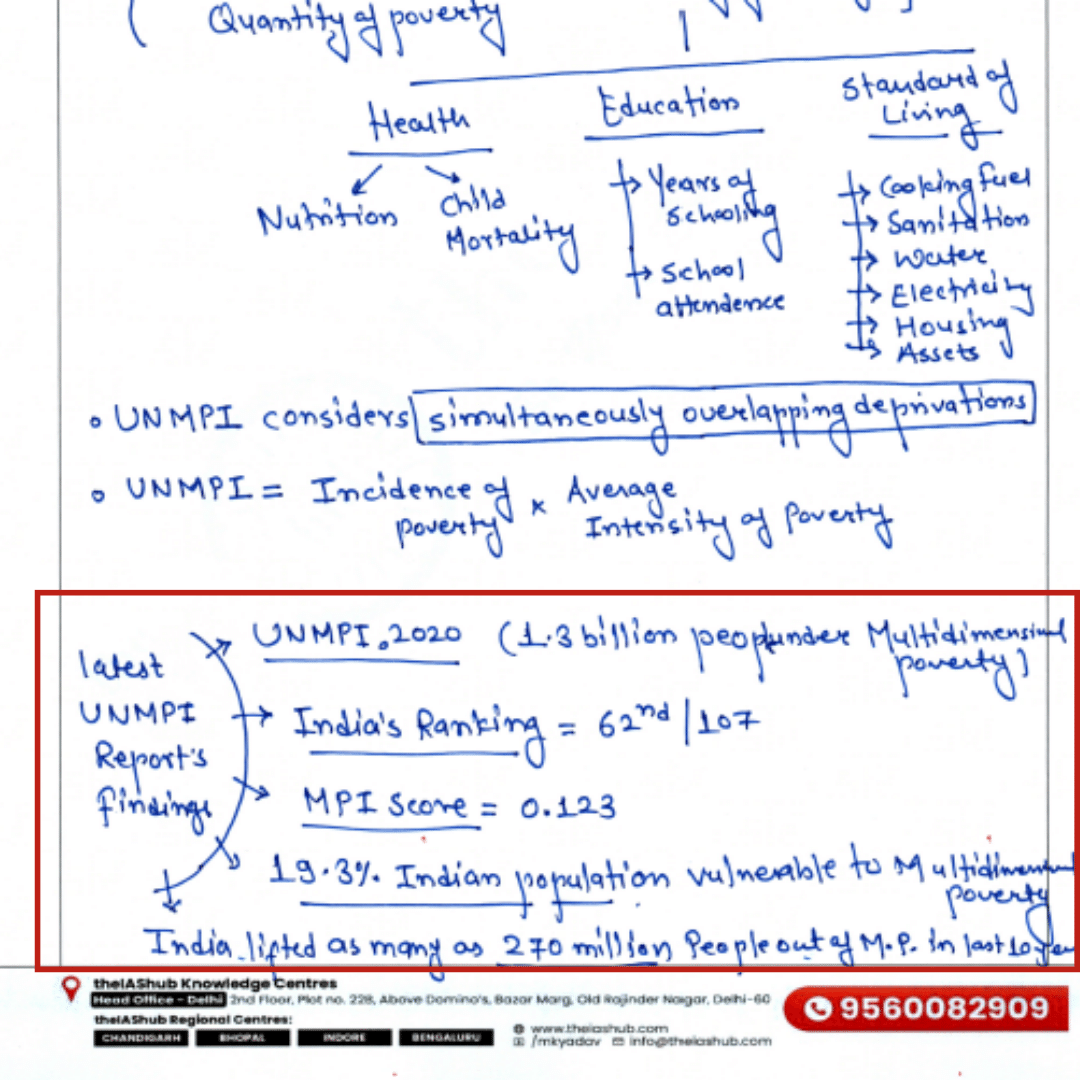 ( Quantity of poverty
Health
Education
Standard of
Living
Nutrition
Child
Mortality
Years of
Schooling
School
attendence
Cooking fuel
Sanitation
Water
Electricity
Housing
Assets
UNMPI considers simultaneously overlapping deprivations
UNMPI = Incidence of × Average
poverty Intensity of Poverty
UNMPI.2020 (1.3 billion people under Multidimensional
poverty)
latest
UNMPI
Report's
findings
India's Ranking = 62nd/107
MPI Score = 0.123
19.3% Indian population vulnerable to Multidimensional
poverty
India lifted as many as 270 million People out of M.P. in last 10 year
theIAShub Knowledge Centres
Head Office - Delhi 2nd Floor, Plot no. 22B, Above Domino's, Bazar Marg, Old Rajinder Nagar, Delhi-60
theIAShub Regional Centres:
CHANDIGARH BHOPAL INDORE BENGALURU
www.theiashub.com
/mkyadav info@theiashub.com
9560082909